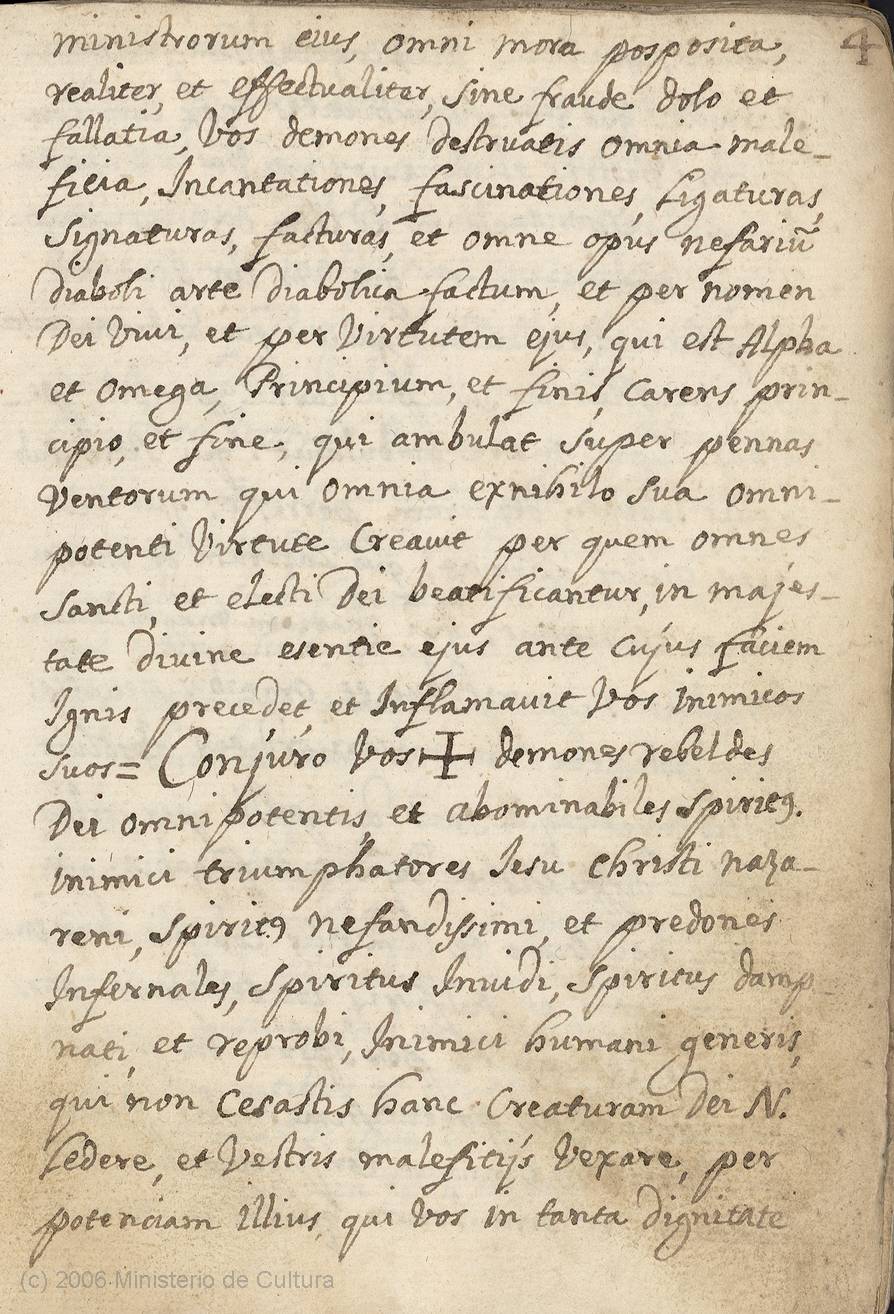 4
ministrorum eius, omni mora posposita,
realiter, et effectualiter, sine fraude dolo et
fallatia, vos demones destruatis omnia male-
ficia, Incantationes, fascinationes, Ligaturas,
Signaturas, facturas, et omne opus nefariū
diaboli arte diabolica factum, et per nomen
Dei vivi, et per virtutem ejus, qui est Alpha
et Omega, Principium, et finis, Carens prin-
cipio, et fine, qui ambulat super pennas
ventorum qui omnia exnihilo sua omni-
potenti virtute Creavit per quem omnes
Sancti, et electi Dei beatificantur, in majes-
tate divine esentie ejus ante Cujus faciem
Ignis precedet, et Inflamavit vos inimicos
suos= Conjuro vos ✠ demones rebeldes
Dei omnipotentis, et abominabiles spiritꝰ.
inimici triumphatores Iesu Christi naza-
reni, spiritꝰ nefandissimi, et predones
Infernales, spiritus Invidi, spiritus damp-
nati, et reprobi, Inimici humani generis,
qui non Cesastis hanc Creaturam Dei N.
Ledere, et vestris malefitijs vexare, per
potenciam illius, qui vos in tanta dignitate
(c) 2006 Ministerio de Cultura